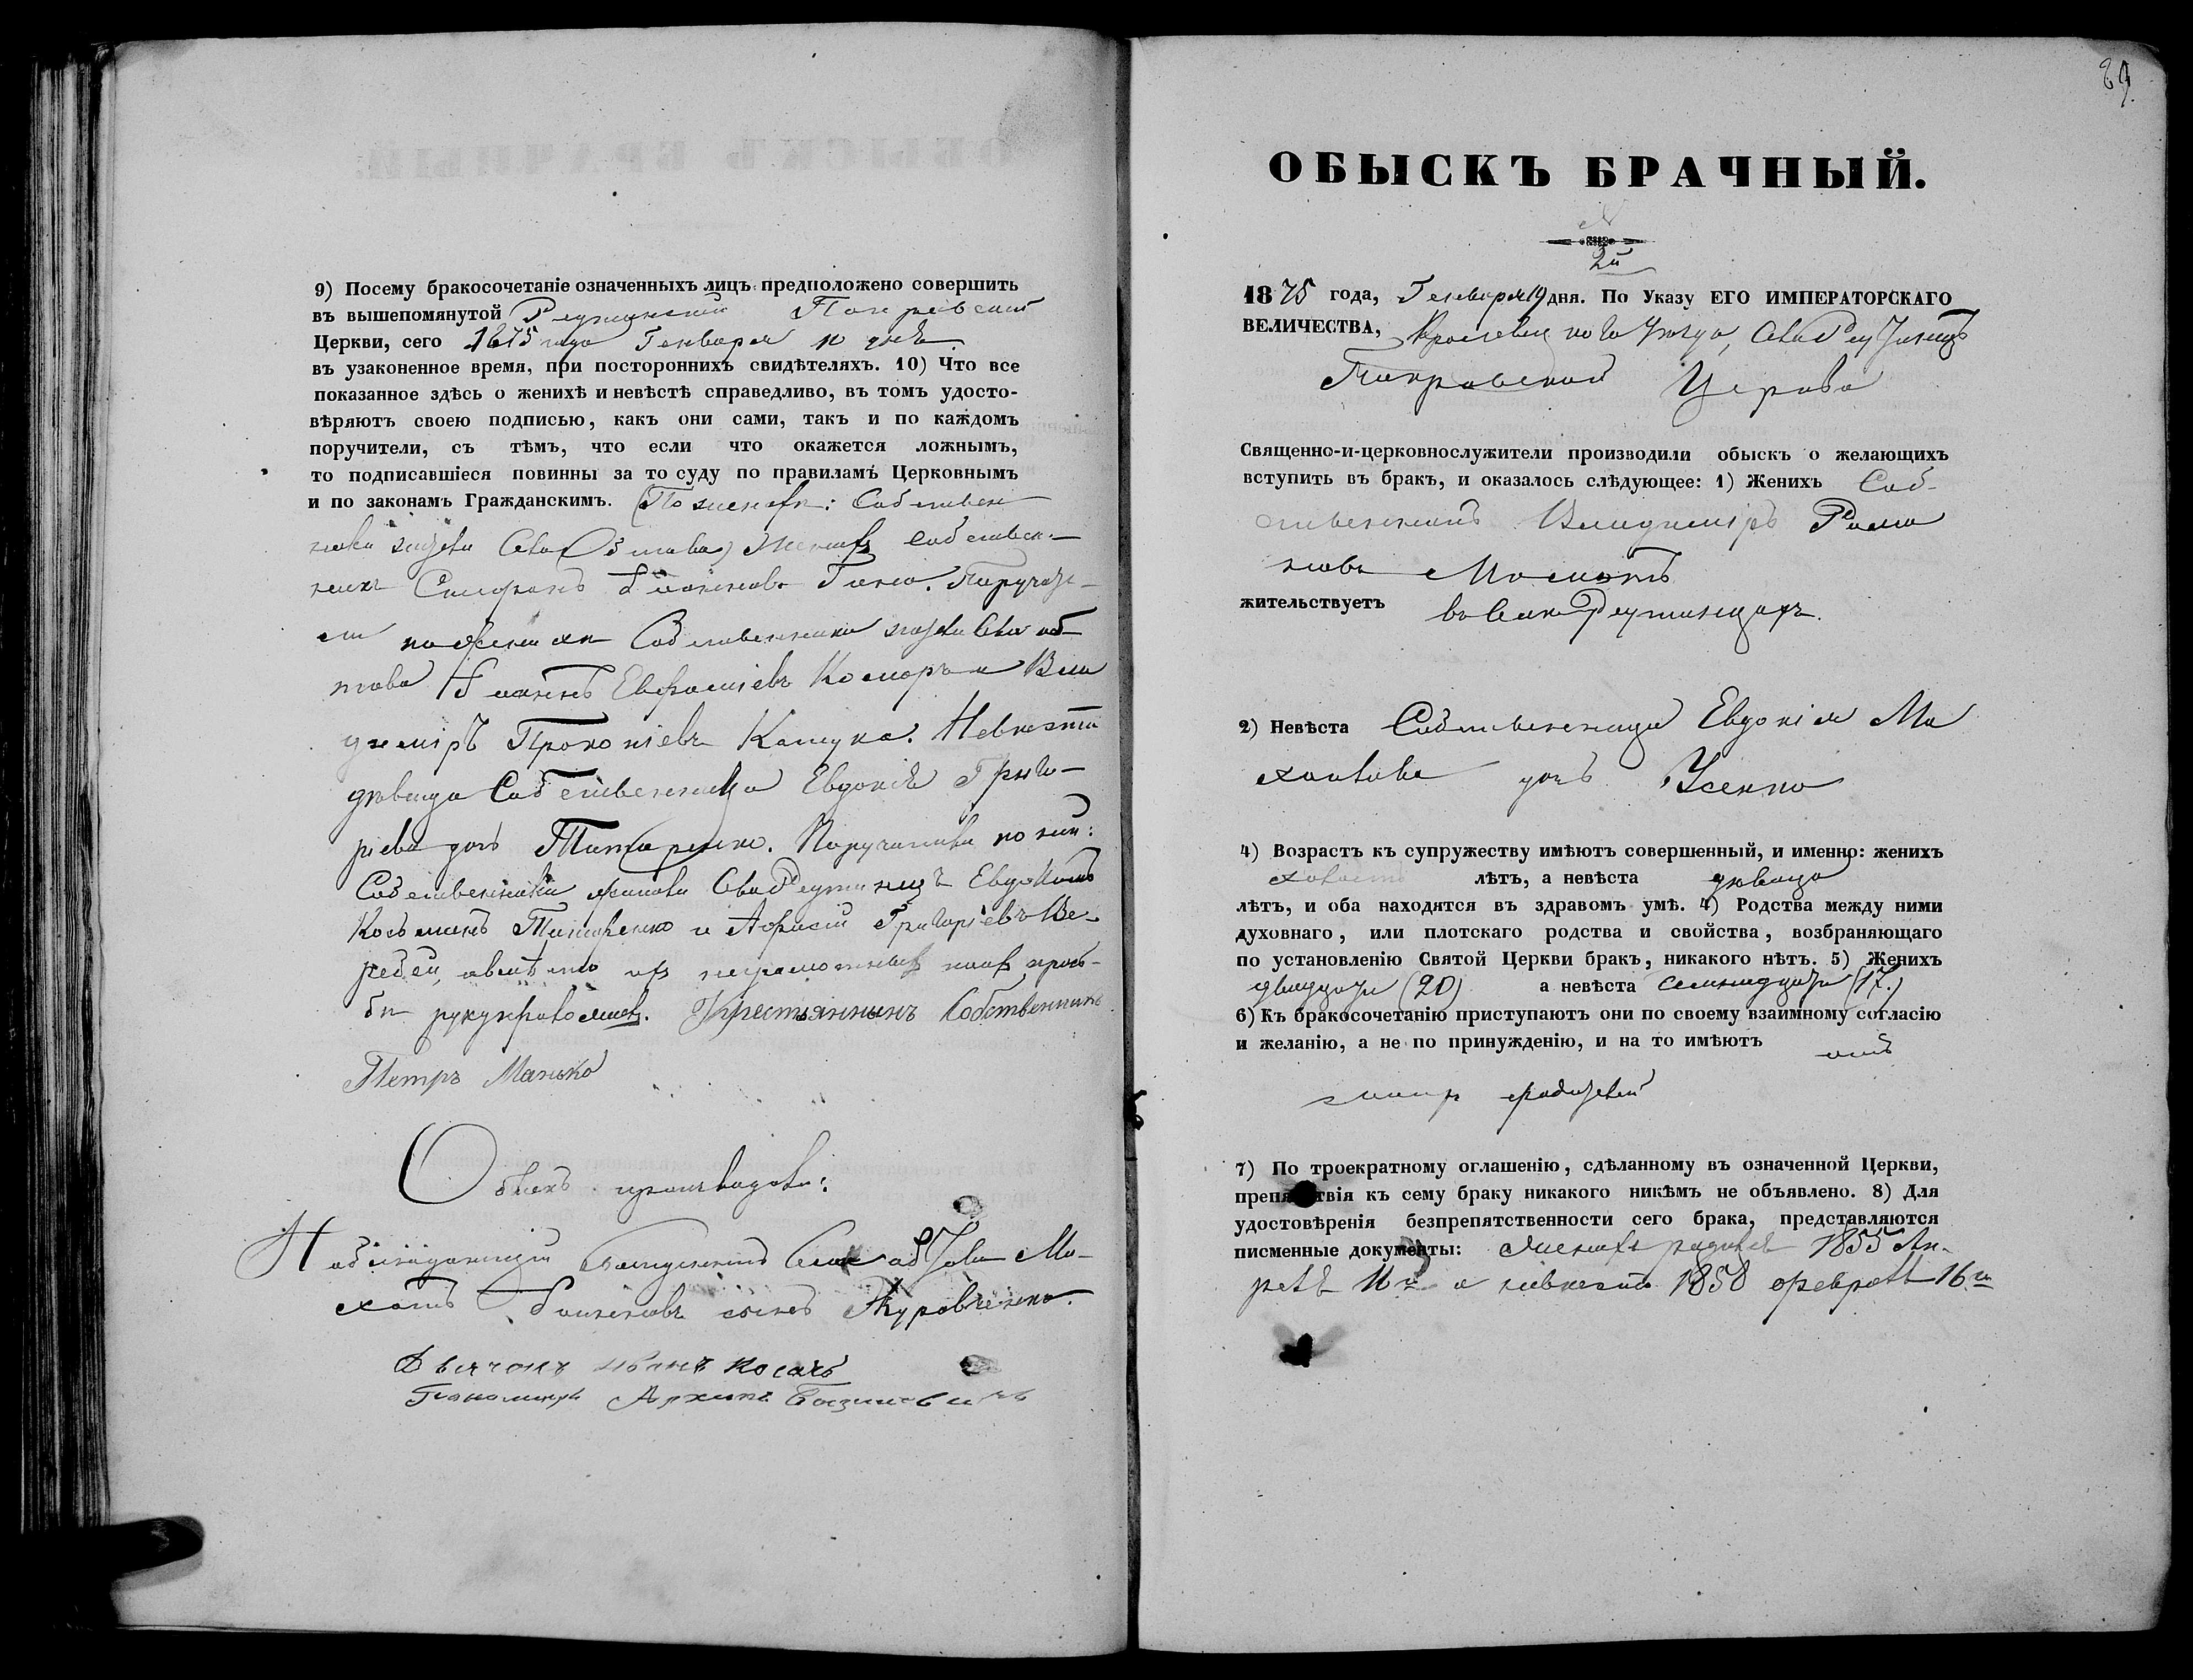 9) Посему бракосочетаніе означенныхъ лицъ предположено совершить
въ вышепомянутой Реутинской Покровской
Церкви, сего 1875 года Генваря дня
въ узаконенное время, при постороннихъ свидѣтеляхъ. 10) Что все
показанное здѣсь о женихѣ и невѣстѣ справедливо, въ томъ удосто-
вѣряютъ своею подписью, какъ они сами, такъ и по каждомъ
поручители, съ тѣмъ, что если что окажется ложнымъ,
то подписавшіеся повинны за то суду по правиламъ Церковнымъ
и по законамъ Гражданскимъ. Собствен
Женихъ собствен-
никъ Іоанновъ Поручите-
ли по женихѣ Собственники жители
Іоаннъ Комаръ и Вла
диміръ Прокопіевъ Кашука. Невѣста
дѣвица Собственница Евдокія Григо-
ріева дочь Титаренко. Поручители по ней:
Собственники жители Села Реутинецъ Евдокимъ
Косьминъ Титаренко и Григоріевъ Ве-
ребей, а вмѣсто ихъ неграмотныхъ прозь-
бѣ рукуприложилъ. Крестьянинъ Собственникъ
Петръ Манько
Обыскъ производили:
Наблюдающій Священникъ Села Ми-
хаилъ Іоанновъ сынъ Журавченко.
Дьячокъ Иванъ Косачъ
Пономарь Архипъ
89.
ОБЫСКЪ БРАЧНЫЙ.
2й
1875 года, Генваря 19 дня. По Указу ЕГО ИМПЕРАТОРСКАГО
ВЕЛИЧЕСТВА, Кролевецкого Уезда, Села Реутинецъ
Покровской Церкви
Священно-и-церковнослужители производили обыскъ о желающихъ
вступить въ бракъ, и оказалось слѣдующее: 1) Женихъ Соб-
ственникъ Владиміръ Рома
новъ
жительствуетъ въ Селѣ Реутинцахъ.
2) Невѣста Собственница Евдокія Ми
хаилова дочь Усенко
4) Возрастъ къ супружеству имѣютъ совершенный, и именно: женихъ
холостъ лѣтъ, а невѣста дѣвица
лѣтъ, и оба находятся въ здравомъ умѣ. 4) Родства между ними
духовнаго, или плотскаго родства и свойства, возбраняющаго
по установленію Святой Церкви бракъ, никакого нѣтъ. 5) Женихъ
двадцати (20) а невѣста семнадцати (17.)
6) Къ бракосочетанію приступаютъ они по своему взаимному согласію
и желанію, а не по принужденію, и на то имѣютъ отъ
родителей
7) По троекратному оглашенію, сдѣланному въ означенной Церкви,
препятствія къ сему браку никакого никѣмъ не объявлено. 8) Для
удостовѣренія безпрепятственности сего брака, представляются
писменные документы: Женихъ родился 1855 Ап-
реля а невѣста 1858 февраля 16го